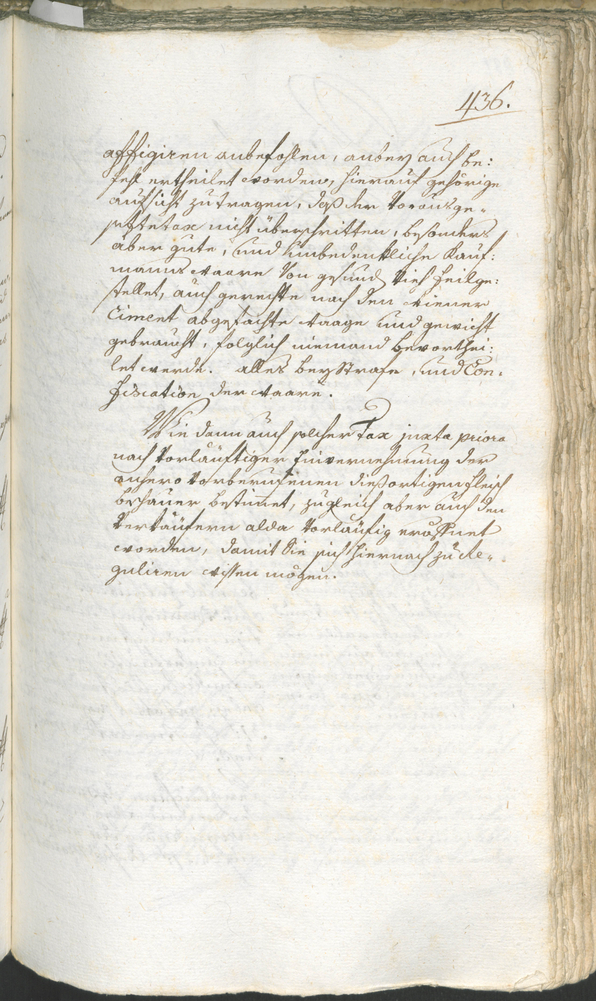 436.
affigiren anbefohlen, anbey auch be:
fehl ertheilet worden, hierauf gehörige
aufsicht zu tragen, daß der vorausge-
setzte tax nicht überschritten, besonders
aber gute, und unbedenkliche Kauf:
manns waare von gesund Vieh feilge:
stellet, auch gerechte nach den wiener
Ciment abgefachte waage und gewicht
gebraucht, folglich niemand bevorthei:
let werde. alles bey Straffe, und Con:
fiscation der waare.
Wie dann auch solcher Tax juxta priora
nach vorläuffiger Einvernehmung der
anhero vorberuffenen diesortigen Fleisch
beschauer bestimet, zugleich aber auch den
verkäuffern alda vorläufig eröffnet
worden, damit Sie sich hiernach zu Re-
guliren wissen mögen.